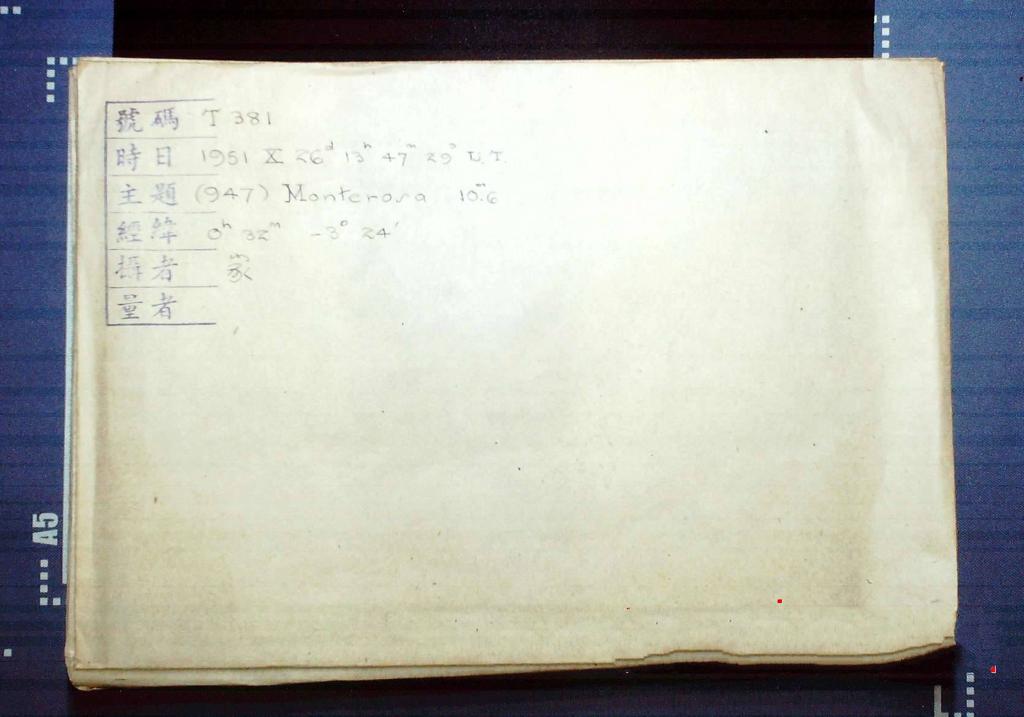 號碼 T 381
時日 1951 X 26ᵈ 13ʰ 47ᵐ 29ˢ U.T.
主題 (947) Monterosa 10ᵐ.6
經緯 0ʰ 32ᵐ -3° 24'
攝者
量者
A5